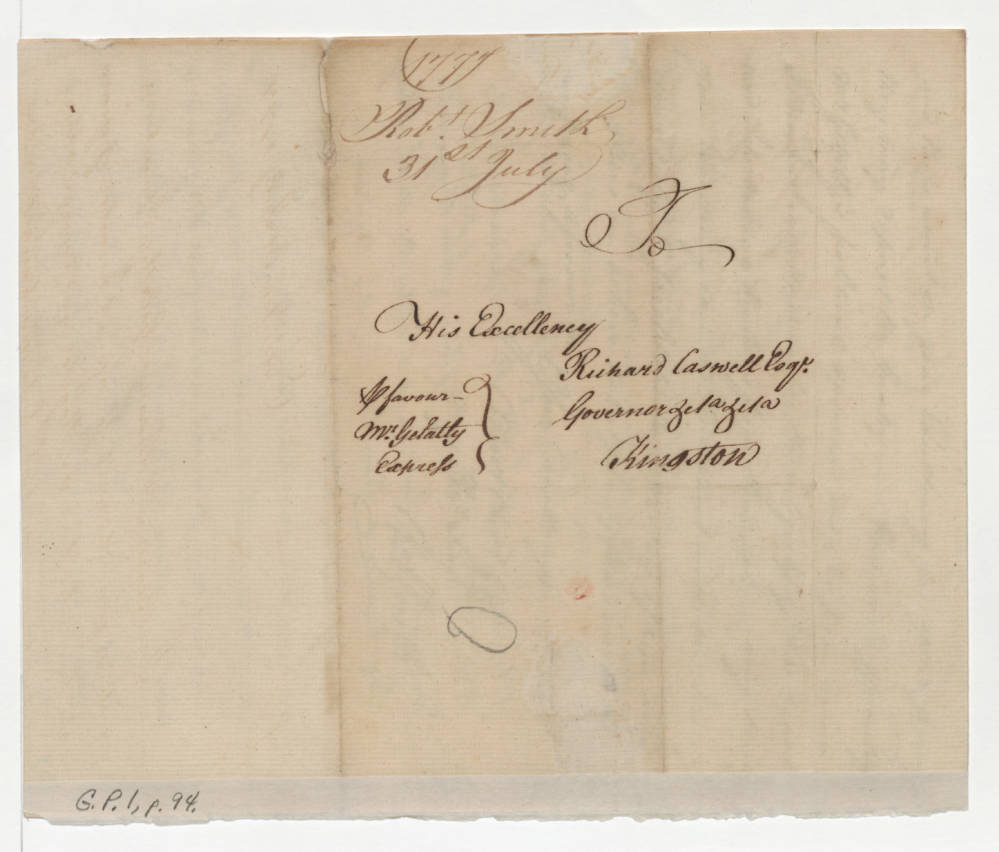 1777
Robt. Smith
31st July
To
His Excellency
Richard Caswell Esqr.
Governor &ca &ca
Kingston
⅌ favour
Mr. Gelatty
Express
G.P.1, p.94.